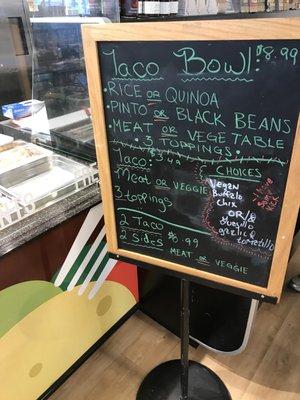 Taco Bowl: $8.99
• RICE OR QUINOA
• PINTO OR BLACK BEANS
• MEAT OR VEGETABLE
• 3 TOPPINGS.
Taco: $3.49
Meat OR VEGGIE
3 toppings
CHOICES
Vegan
Buffalo
Chix
OR/&
garlic
tomatillo
2 Taco
2 Sides $8.99
MEAT OR VEGGIE